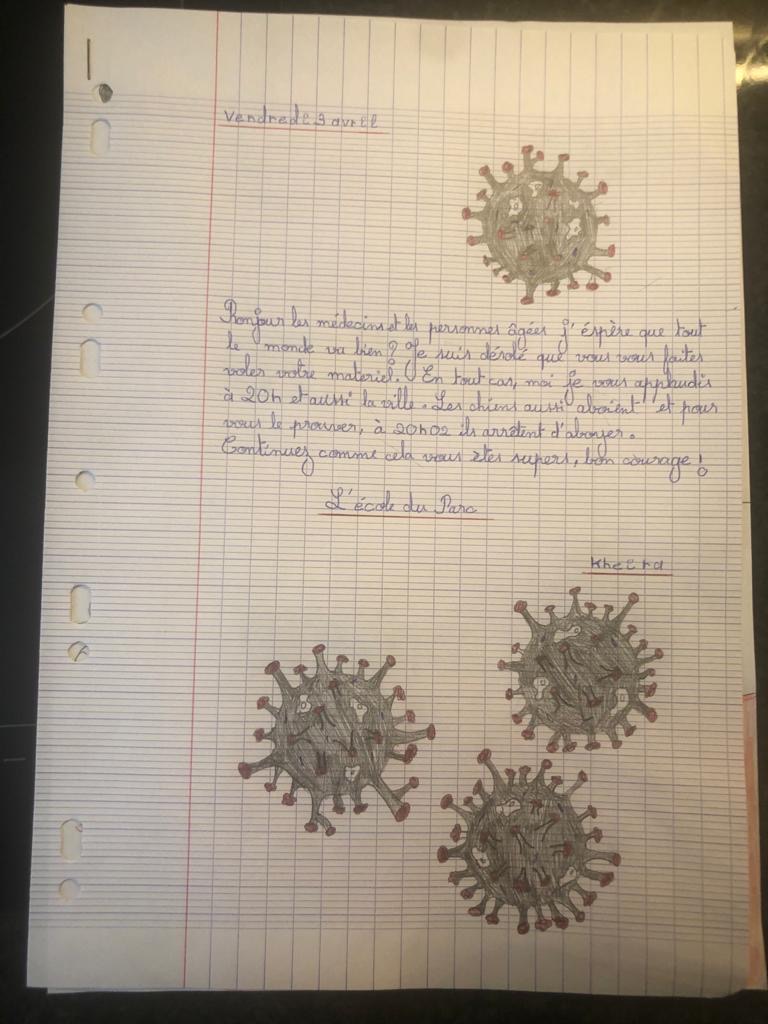 Vendredi 3 avril
Bonjour les médecins et les personnes âgées j'éspère que tout
le monde va bien ? Je suis désolé que vous vous faites
voler votre materiel. En tout cas, moi je vous applaudis
à 20h et aussi la ville. Les chiens aussi aboient et pour
vous le prouver, à 20h02 ils arrêtent d'aboyer.
Continuez comme cela vous êtes supers, bon courage !
L'école du Parc